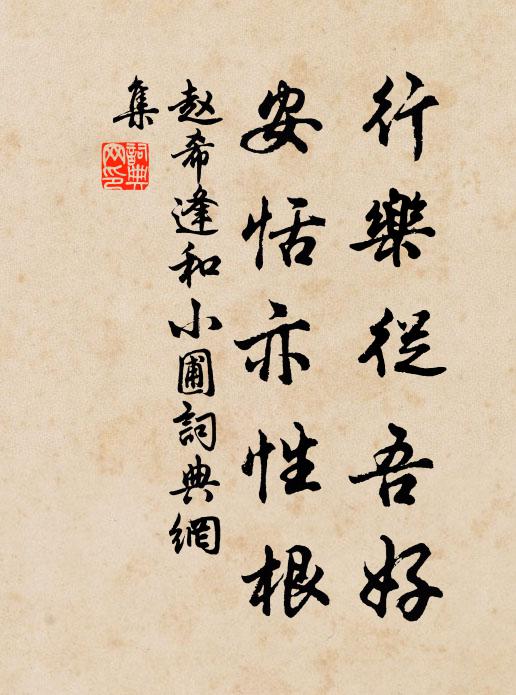 行樂從吾好
安恬亦性根
赵希逢和小圃詞典網
集
詞典網印